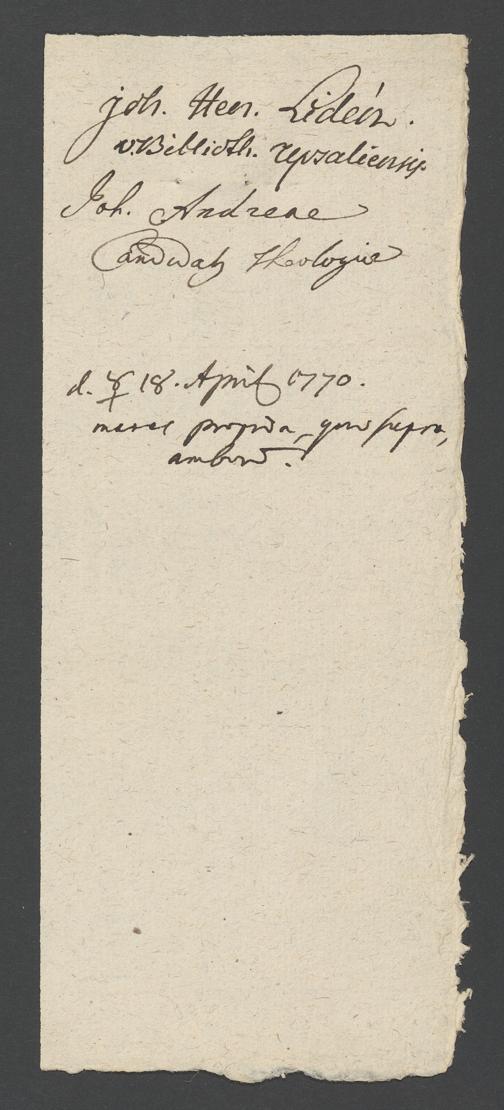 Joh. Hen. Lidén.
v. Biblioth. Upsaliensis
Joh. Andreae
Candidatg Theologiae
d. ☿ 18. April 1770.
manu propria, quae supra,